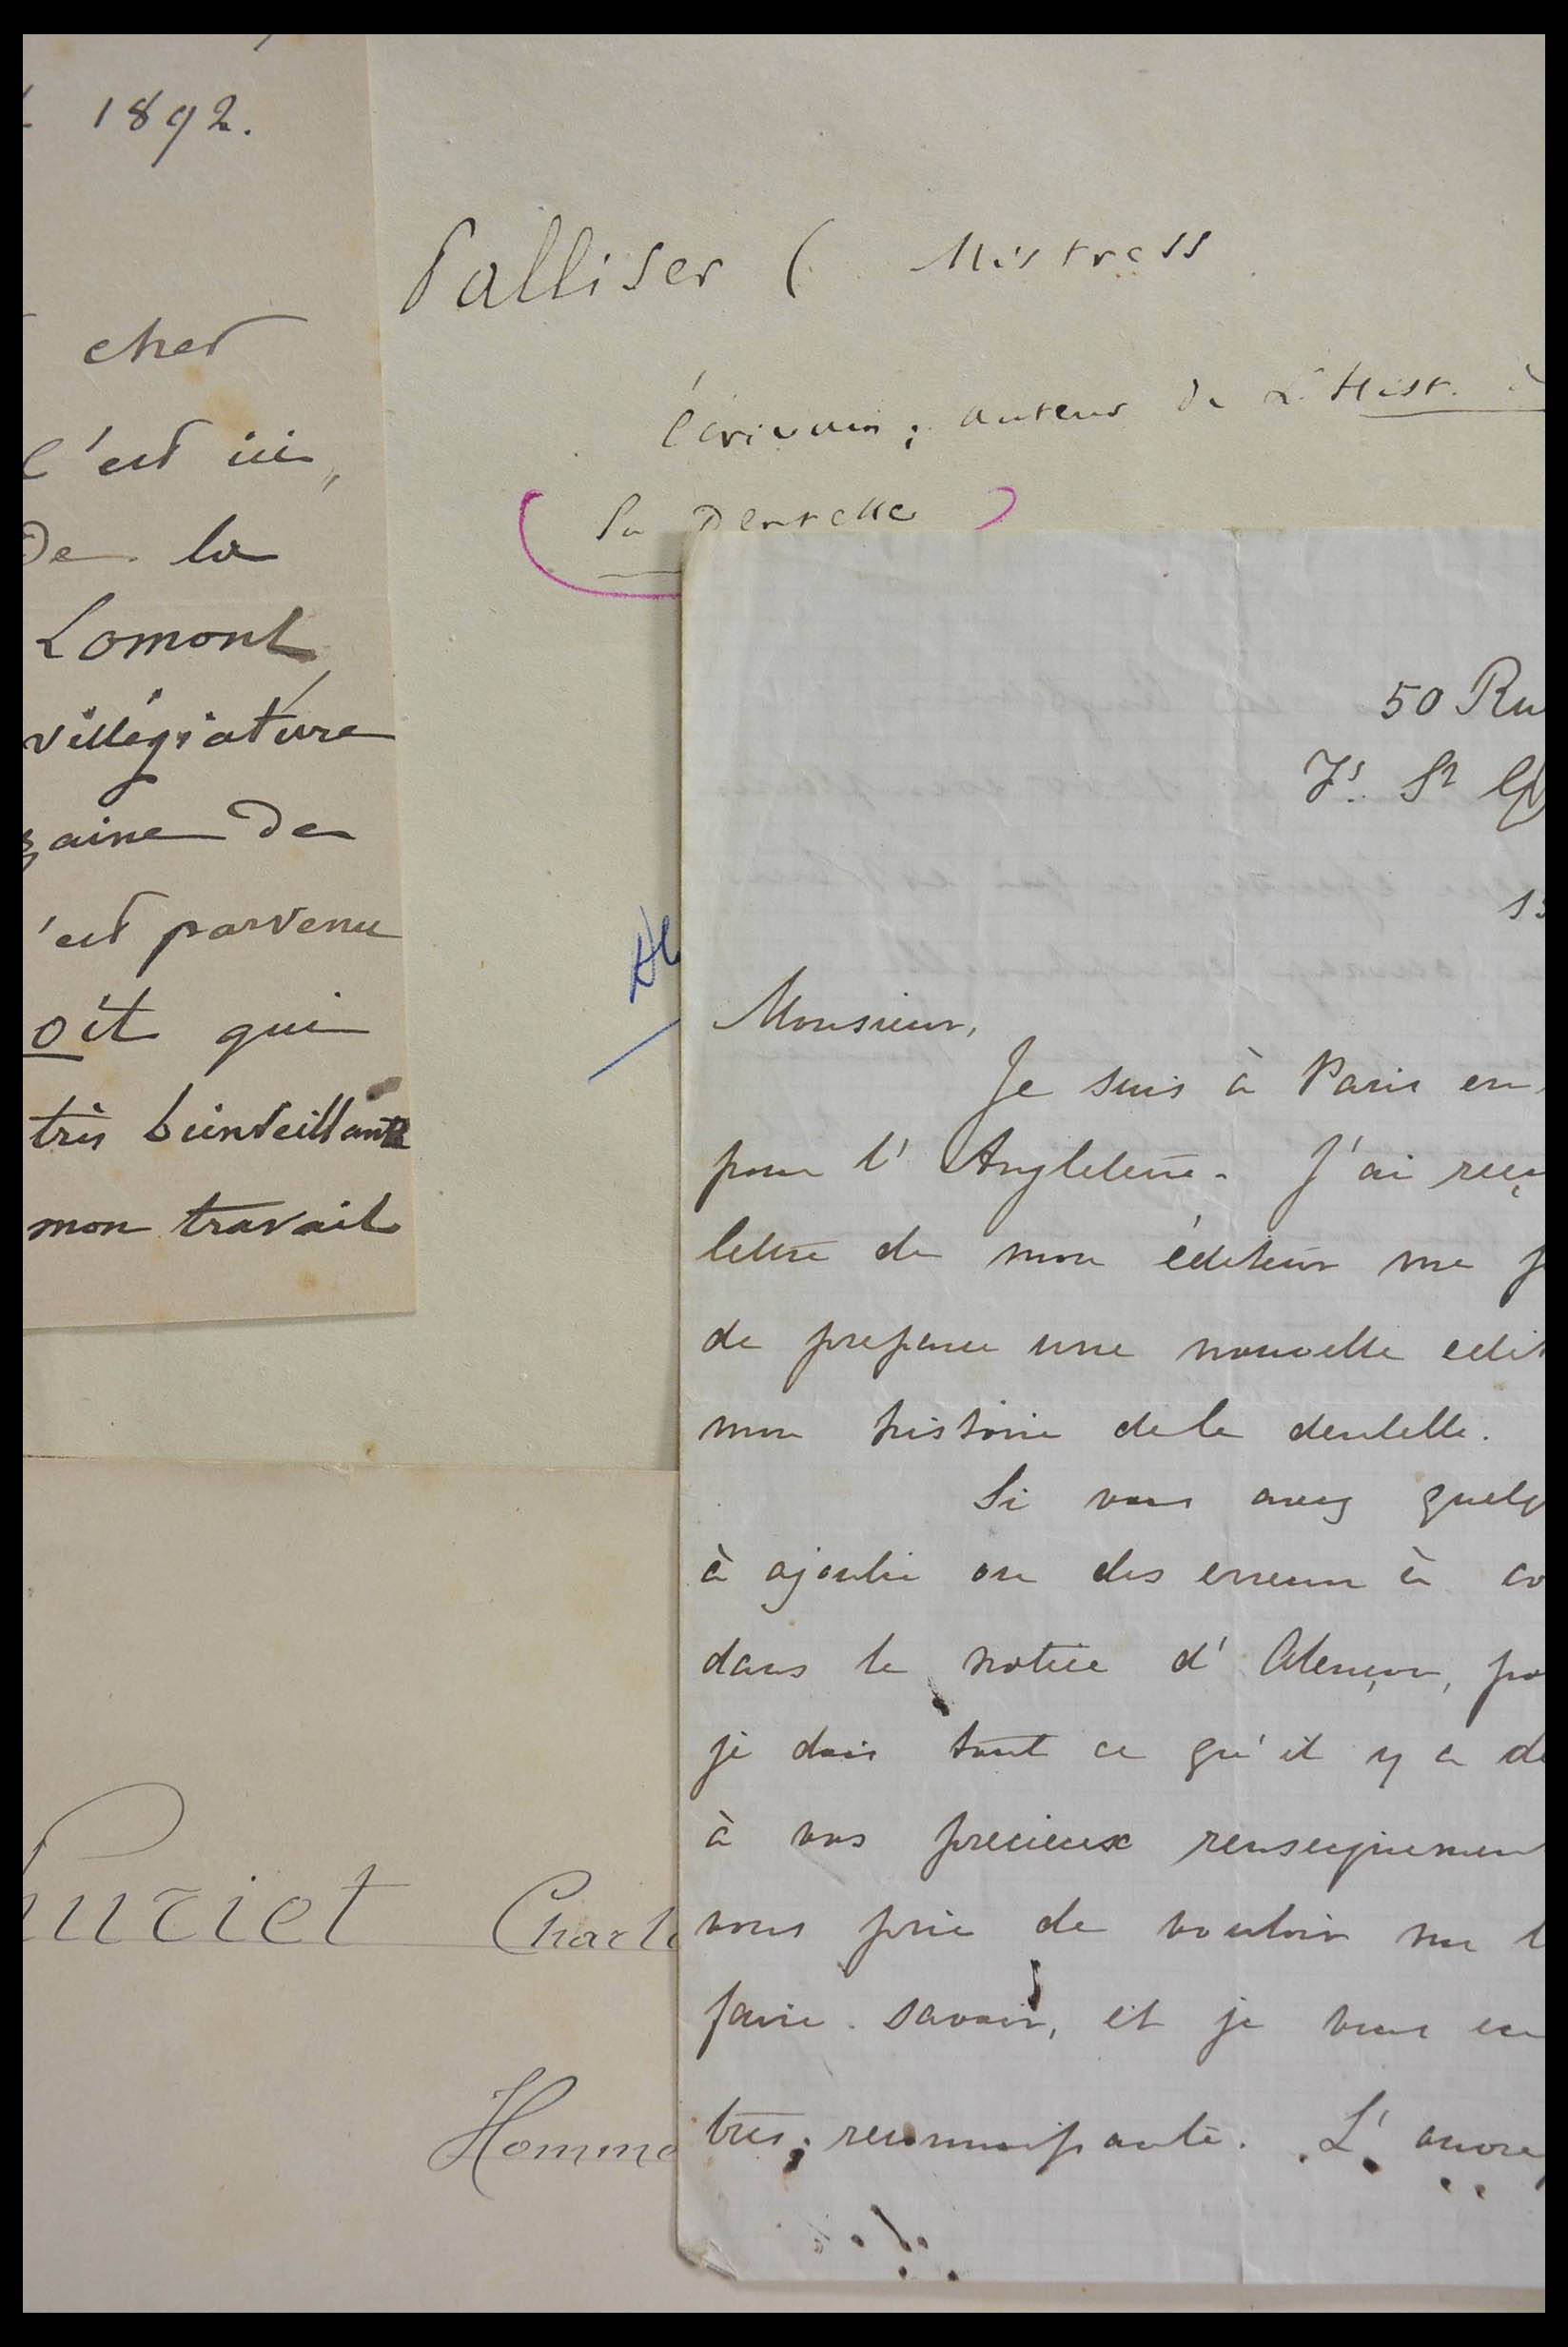 1892.
cher
c'est ici,
De la
Lomont
villégiature
zaine de
'est parvenu
oit qui
très bienveillante
mon travail
Palliser ( Mistress
écrivain ; auteur de L'Hist. d
la Dentelle )
50 Ru
Fg. St
Monsieur,
Je suis à Paris en
pour l'Angleterre. J'ai reçu
lettre de mon éditeur me
de preparer une nouvelle edit
mon histoire de la dentelle.
Si vous avez quelq
à ajouter ou des erreurs à co
dans la notice d'Alençon, po
je dois tout ce qu'il y a de
à vos precieux renseignemen
vous prie de vouloir me l
faire savoir, et je vous en
très reconnaissante. L'
uriet Charle
Homme